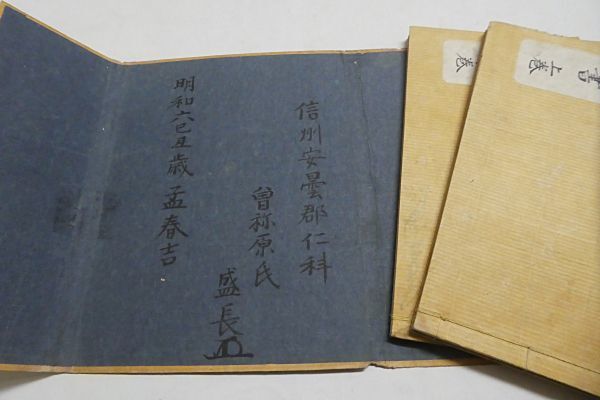 書上巻
巻
信州安曇郡仁科
曽祢原氏
盛長
明和六己丑歳孟春吉